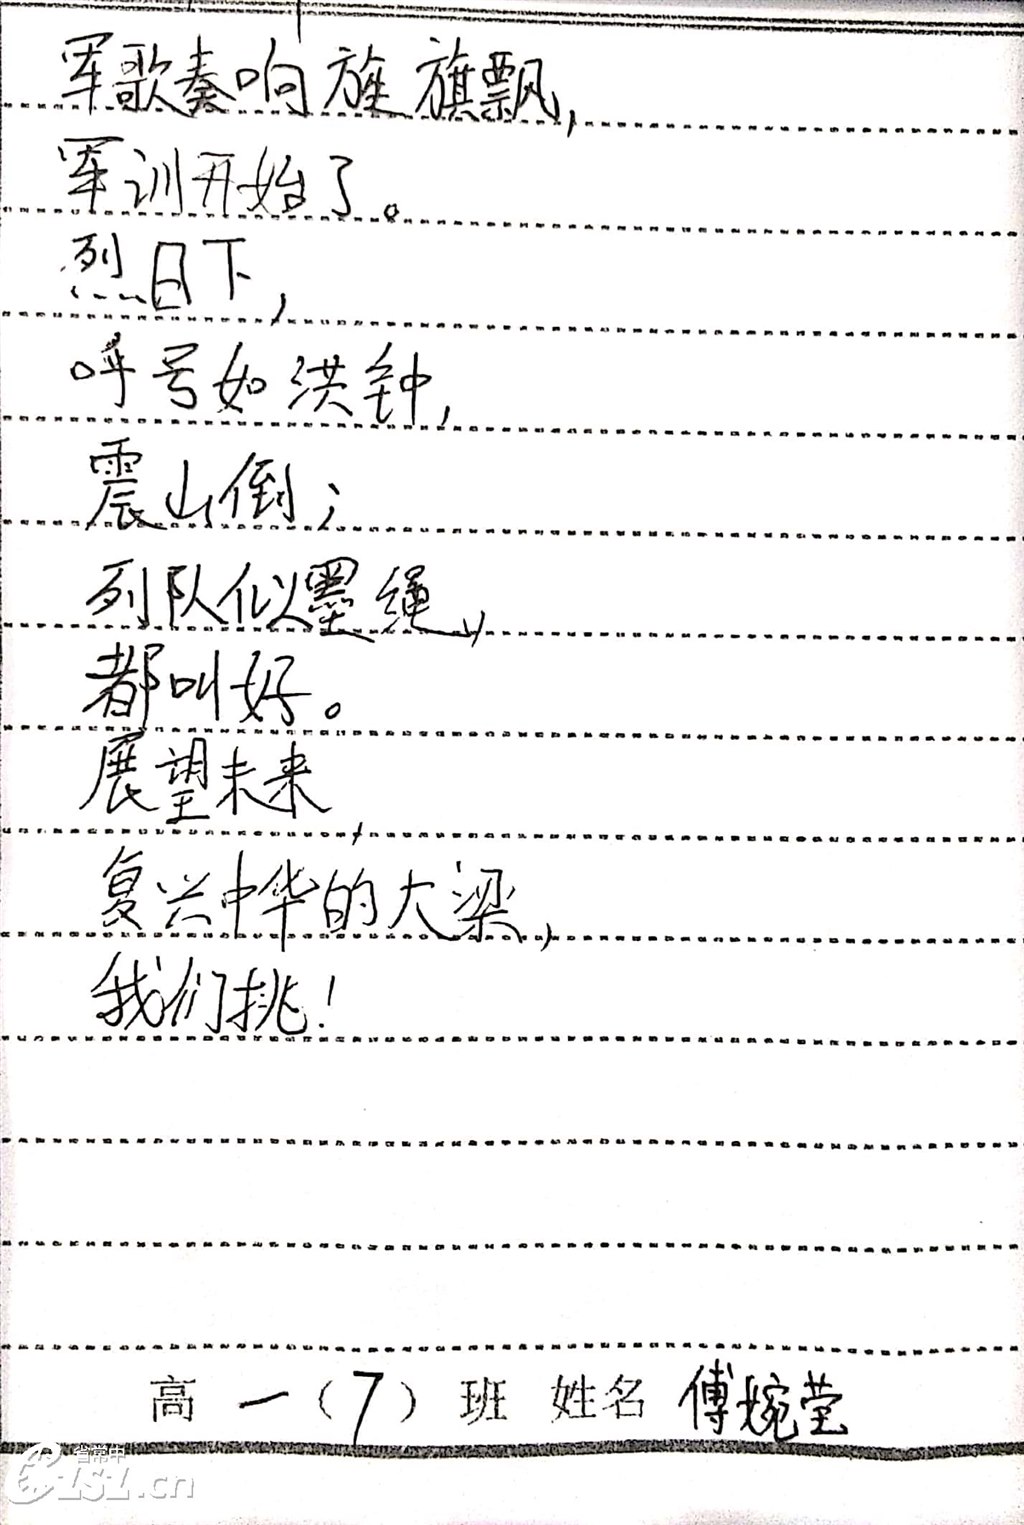 军歌奏响旌旗飘，
军训开始了。
烈日下，
呼号如洪钟，
震山倒；
列队似墨绳，
都叫好。
展望未来，
复兴中华的大梁，
我们挑！
高一（7）班 姓名 傅婉莹
省常中
CZSZ.cn